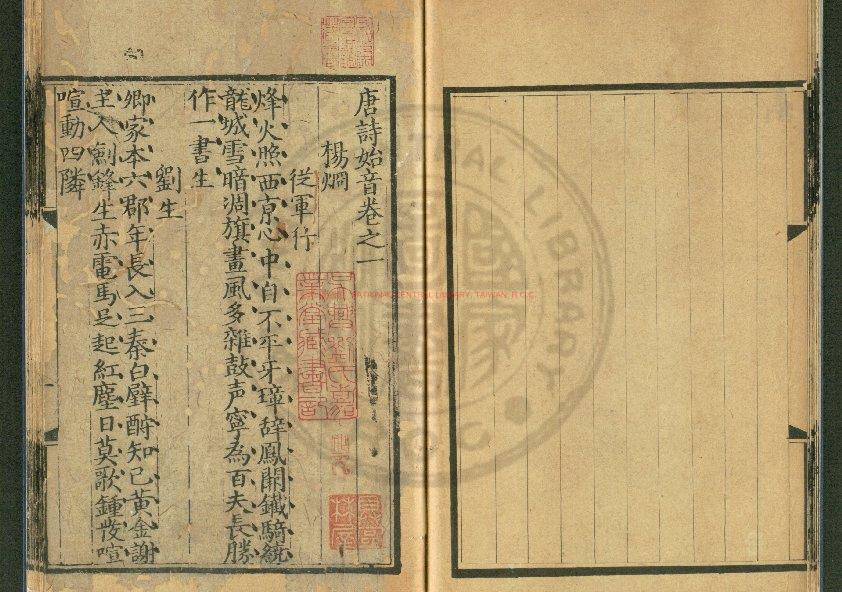 唐詩始音卷之一
楊烱
從軍行
烽火照西京心中自不平牙璋辞鳳闕鐵騎繞
龍城雪暗凋旗畫風多雜鼓声寧為百夫長勝
作一書生
劉生
卿家本六郡年長入三秦白璧酧知己黃金謝
主人劍鋒生赤電馬足起紅塵日莫歌鍾發喧
喧動四隣
NATIONAL CENTRAL LIBRARY, TAIWAN, R.O.C.